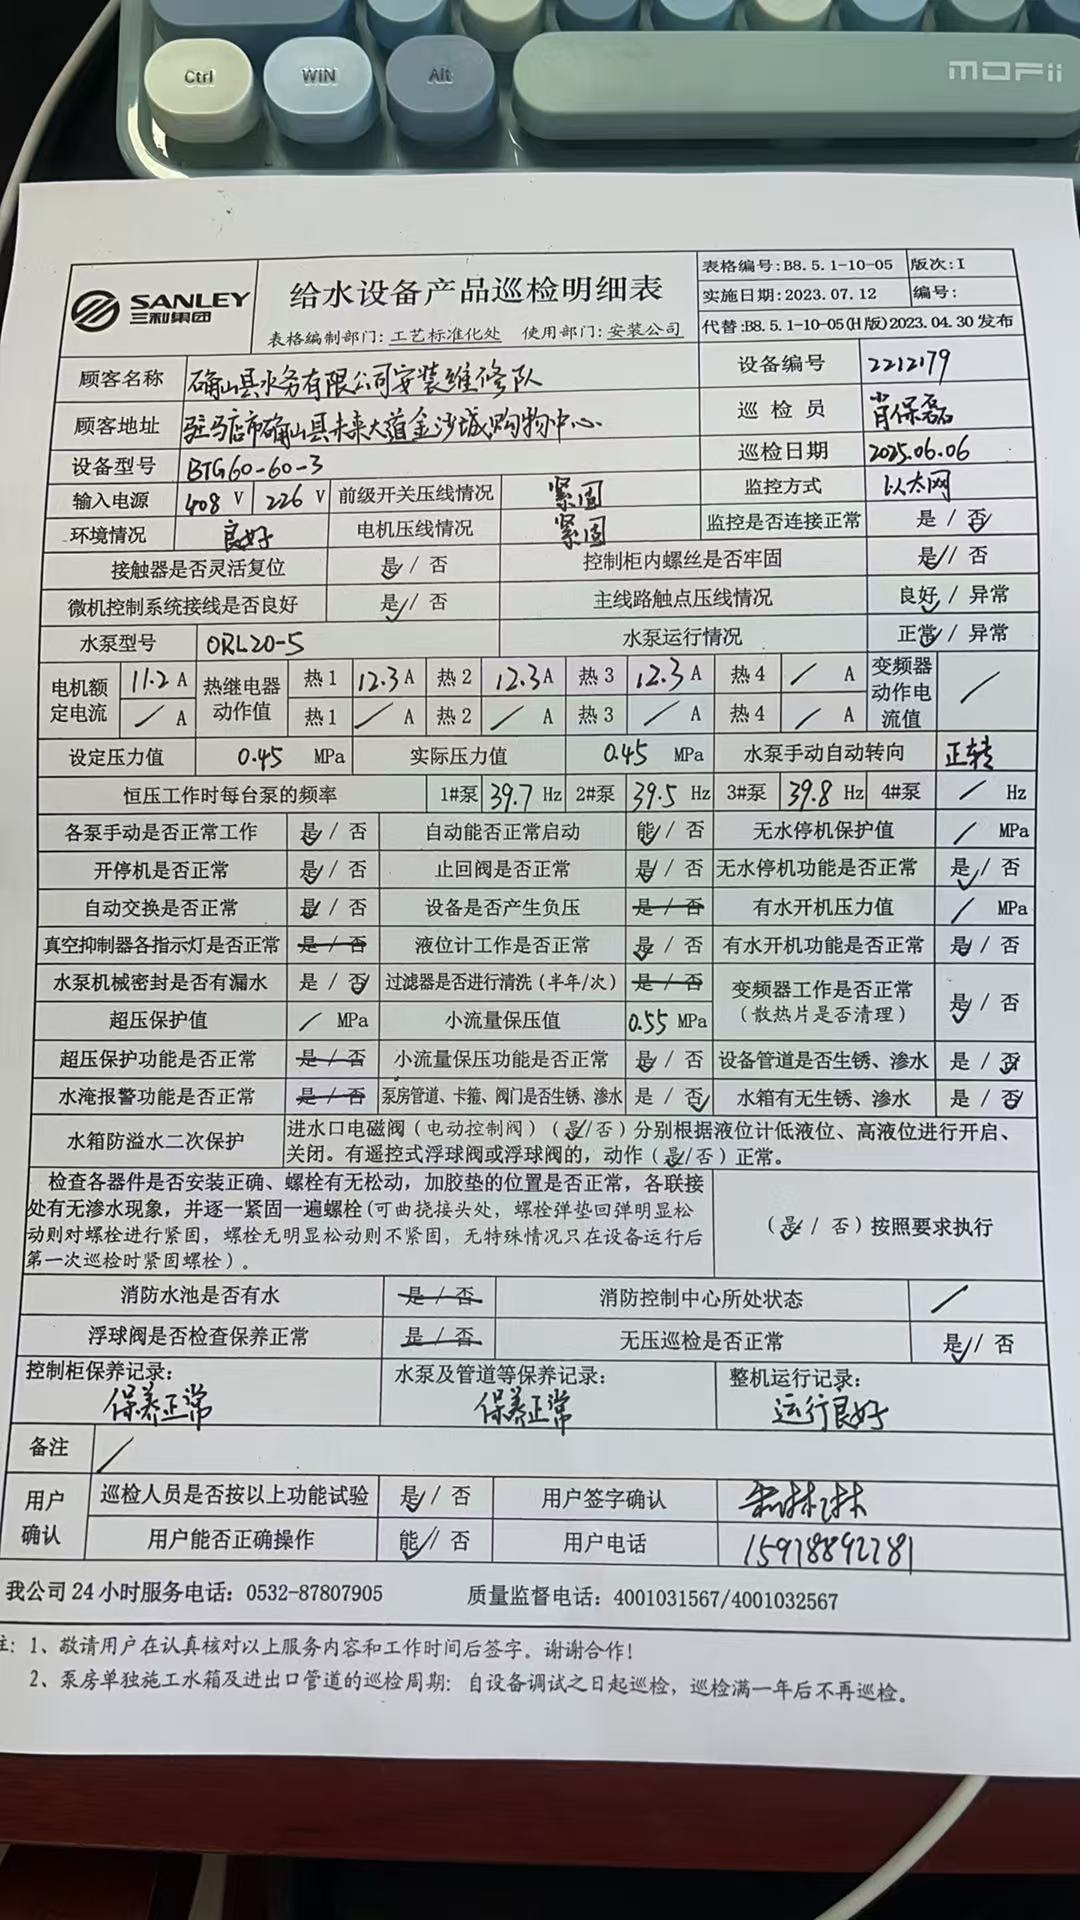 Ctrl WIN Alt MOFii
SANLEY
三利集团
给水设备产品巡检明细表
表格编制部门: 工艺标准化处 使用部门: 安装公司
表格编号:B8.5.1-10-05 版次:I
实施日期:2023.07.12 编号:
代替:B8.5.1-10-05(H版)2023.04.30发布
顾客名称 确山县水务有限公司安装维修队 设备编号 2212179
顾客地址 驻马店市确山县未来大道金沙城购物中心 巡检员 肖保磊
设备型号 BTG60-60-3 巡检日期 2025.06.06
输入电源 408 V 226 V 前级开关压线情况 紧固 监控方式 以太网
环境情况 良好 电机压线情况 紧固 监控是否连接正常 是 / 否
接触器是否灵活复位 是 / 否 控制柜内螺丝是否牢固 是 / 否
微机控制系统接线是否良好 是 / 否 主线路触点压线情况 良好 / 异常
水泵型号 ORL20-5 水泵运行情况 正常 / 异常
电机额定电流 11.2 A 热继电器动作值 热1 12.3 A 热2 12.3 A 热3 12.3 A 热4 / A 变频器动作电流值 /
/ A 热1 / A 热2 / A 热3 / A 热4 / A
设定压力值 0.45 MPa 实际压力值 0.45 MPa 水泵手动自动转向 正转
恒压工作时每台泵的频率 1#泵 39.7 Hz 2#泵 39.5 Hz 3#泵 39.8 Hz 4#泵 / Hz
各泵手动是否正常工作 是 / 否 自动能否正常启动 能 / 否 无水停机保护值 / MPa
开停机是否正常 是 / 否 止回阀是否正常 是 / 否 无水停机功能是否正常 是 / 否
自动交换是否正常 是 / 否 设备是否产生负压 是 / 否 有水开机压力值 / MPa
真空抑制器各指示灯是否正常 是 / 否 液位计工作是否正常 是 / 否 有水开机功能是否正常 是 / 否
水泵机械密封是否有漏水 是 / 否 过滤器是否进行清洗(半年/次) 是 / 否 变频器工作是否正常
(散热片是否清理) 是 / 否
超压保护值 / MPa 小流量保压值 0.55 MPa
超压保护功能是否正常 是 / 否 小流量保压功能是否正常 是 / 否 设备管道是否生锈、渗水 是 / 否
水淹报警功能是否正常 是 / 否 泵房管道、卡箍、阀门是否生锈、渗水 是 / 否 水箱有无生锈、渗水 是 / 否
水箱防溢水二次保护 进水口电磁阀(电动控制阀)(是/否)分别根据液位计低液位、高液位进行开启、
关闭。有遥控式浮球阀或浮球阀的,动作(是/否)正常。
检查各器件是否安装正确、螺栓有无松动,加胶垫的位置是否正常,各联接
处有无渗水现象,并逐一紧固一遍螺栓(可曲挠接头处,螺栓弹垫回弹明显松
动则对螺栓进行紧固,螺栓无明显松动则不紧固,无特殊情况只在设备运行后
第一次巡检时紧固螺栓)。
(是 / 否)按照要求执行
消防水池是否有水 是 / 否 消防控制中心所处状态 /
浮球阀是否检查保养正常 是 / 否 无压巡检是否正常 是 / 否
控制柜保养记录: 水泵及管道等保养记录: 整机运行记录:
保养正常 保养正常 运行良好
备注 /
用户确认 巡检人员是否按以上功能试验 是 / 否 用户签字确认
用户能否正确操作 能 / 否 用户电话 15978892781
我公司24小时服务电话: 0532-87807905 质量监督电话: 4001031567/4001032567
注: 1、敬请用户在认真核对以上服务内容和工作时间后签字。谢谢合作!
2、泵房单独施工水箱及进出口管道的巡检周期: 自设备调试之日起巡检,巡检满一年后不再巡检。